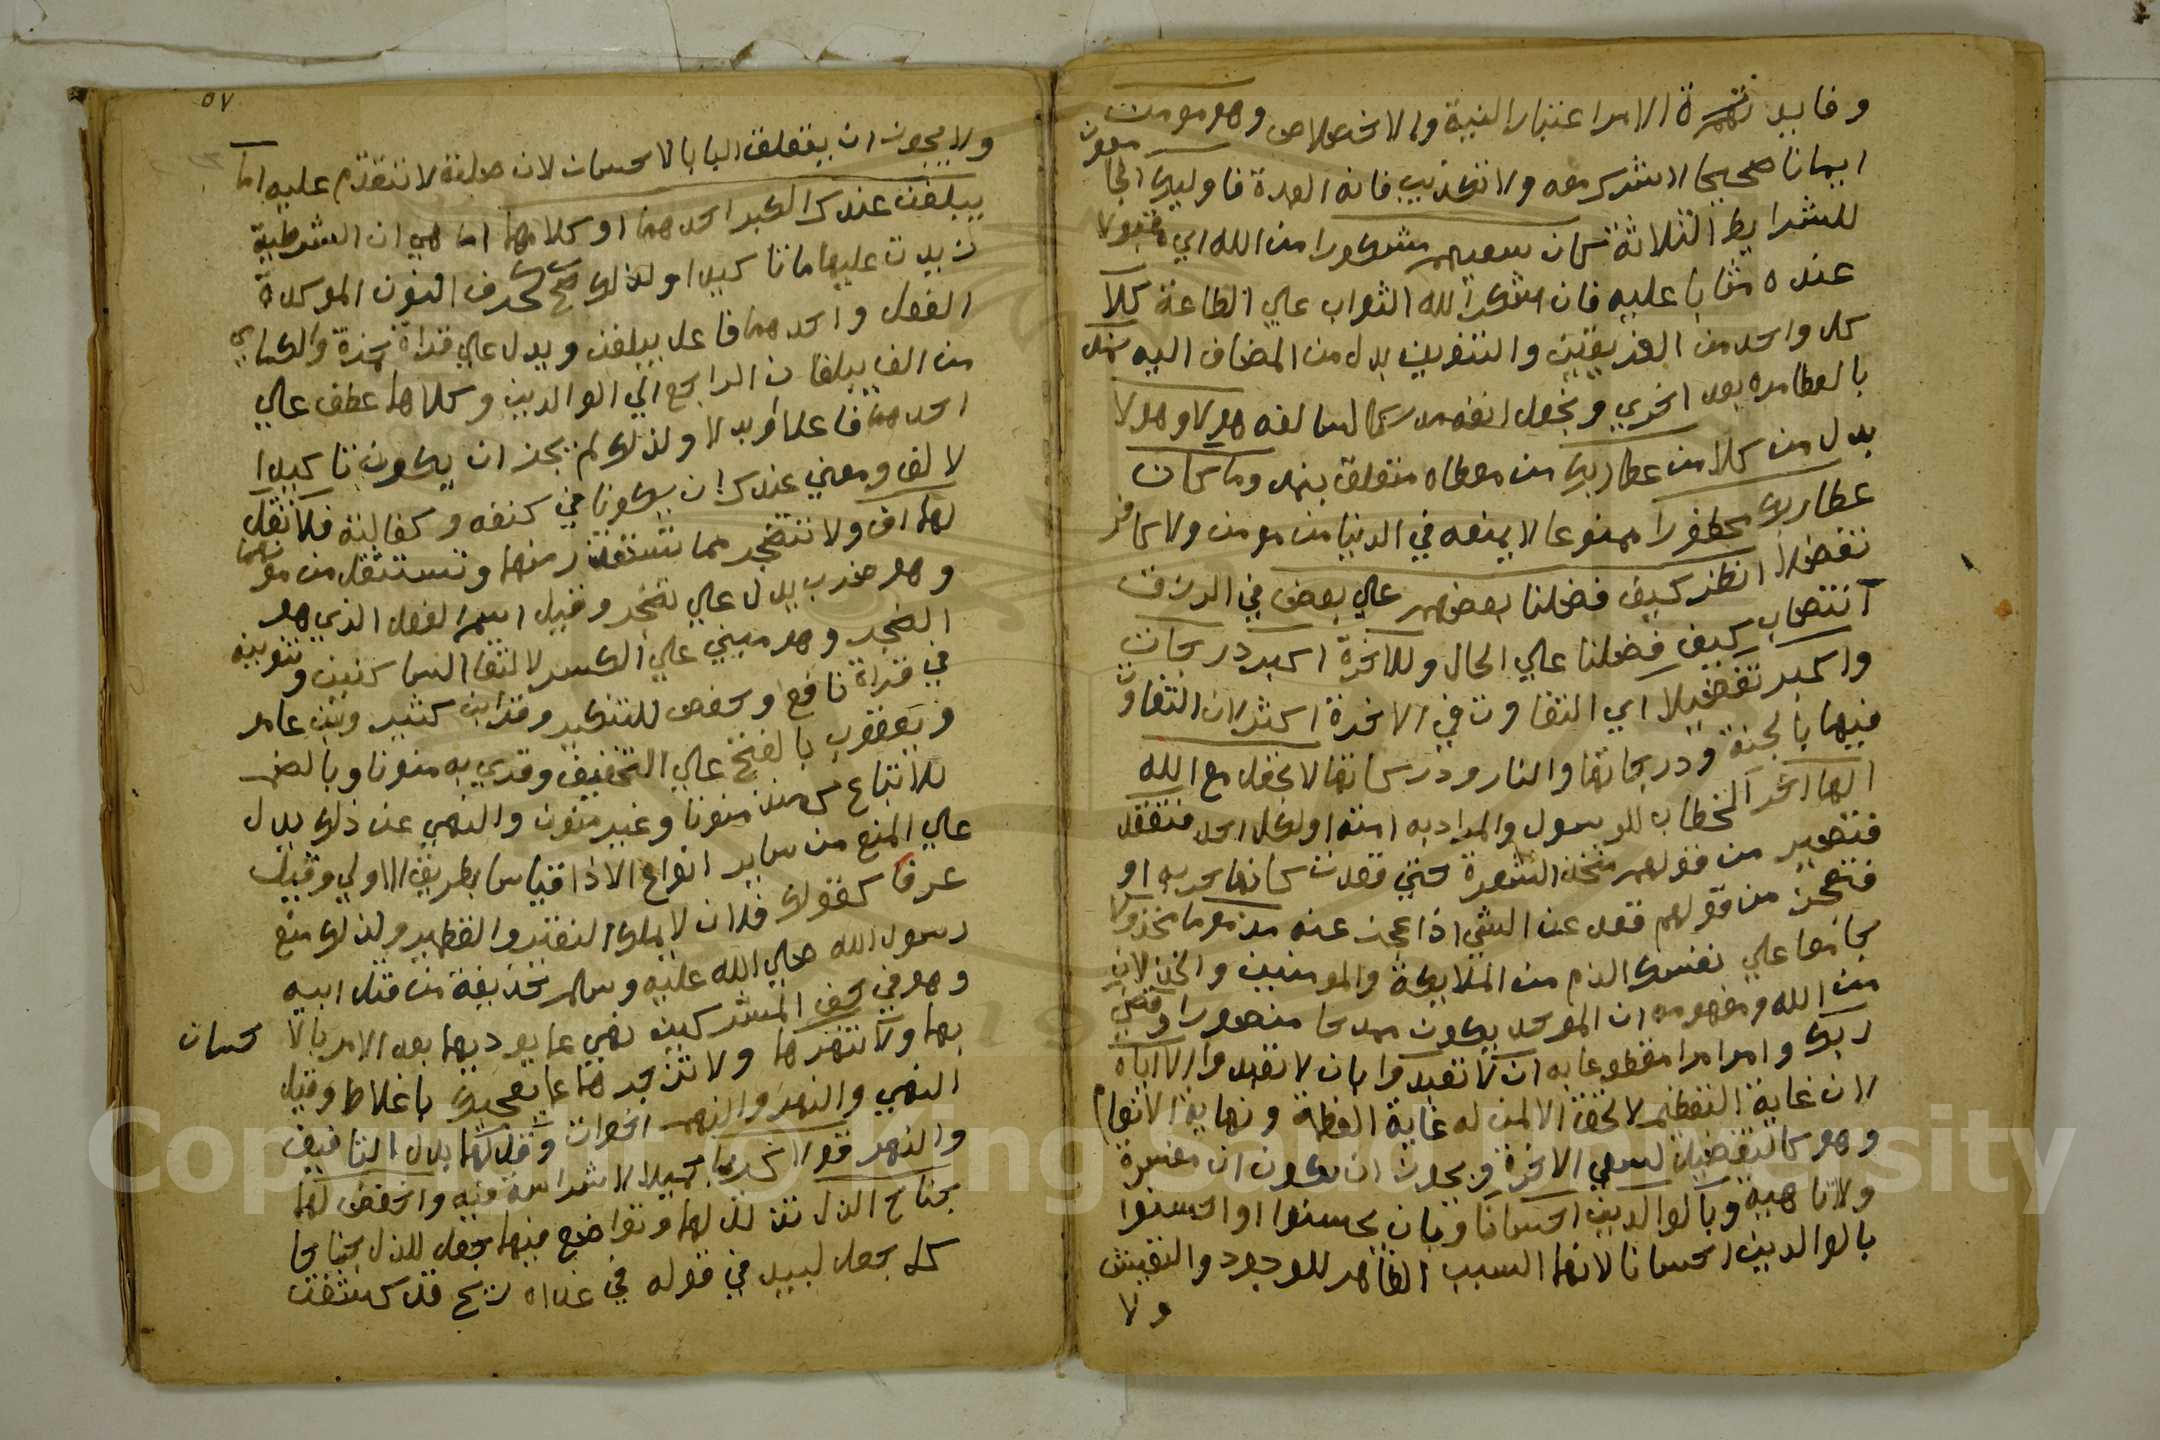 وفايد تهمرة الامرا عتبار النية والاخلاص وهو مومن
ايمانا صحيحا لا شرك معه ولا تكذيب فانه العمدة فاوليك الجا معون
للشرايط الثلاثة كان سعيهم مشكورا من الله اي مقبولا
عنده مثابا عليه فان شكر الله الثواب علي الطاعة كلا
كل واحد من الفريقين والتنوين بدل من المضاف اليه نمد
بالعطا مره بعد اخري ونجعل انفه مدركا لسالفه هولا وهولا
بدل من كلا من عطا ربك من معطاه متعلق بنمد وما كان
عطا ربك محظورا ممنوعا لا يمنعه في الدنيا من مومن ولا كافر
تفضلا انظر كيف فضلنا بعضهم علي بعض في الرزق
انتصاب كيف فضلنا علي الحال وللاخرة اكبر درجات
واكبر تفضيلا اي التفاوت في الاخرة اكثر لان التفاوت
فيها بالجنة ودرجاتها والنار ودركاتها لا تجعل مع الله
الها اخر الخطاب للرسول والمراد به امته او لكل احد فتقعد
فتصير من قولهم شحذ الشفرة حتي قعدت كانها حربه او
فتعجز من قولهم قعد عن الشي اذا عجز عنه مذموما مخذولا
جامعا علي نفسك الذم من الملايكة والمومنين والخذلان
من الله ومفهومه ان الموحد يكون ممدحا منصورا وقضي
ربك وامر امرا مقطوعا به ان لا تعبدوا بان لا تعبدوا الا اياه
لان غاية التعظيم لا تحق الا لمن له غاية العظمة ونهاية الانعام
وهو كالتفضيل لسعي الاخرة ويجوز ان يكون ان مفسرة
ولا ناهية وبالوالدين احسانا وبان يحسنوا او احسنوا
بالوالدين احسانا لانهما السبب الظاهر للوجود والتعيش
ولا
٥٧
ولا يجوز ان يتعلق البا بالاحسان لان صلته لا تتقدم عليه اما
يبلغن عندك الكبر احدهما او كلاهما اما هي ان الشرطية
زيدت عليها ما تاكيدا ولذلك صح لحوق النون الموكدة
الفعل واحدهما فاعل يبلغن وبدل علي قراة حمزة والكساي
من الف يبلغان الراجع الي الوالدين وكلاهما عطف علي
احدهما فاعلا او بدلا ولذلك لم يجز ان يكون تاكيدا
لالف ومعني عندك ان يكونا في كنفه وكفالته فلا تقل
لهما اف ولا تتضجر مما تستقذر منهما وتستثقل من مونهما
وهو صوت يدل علي تضجر وقيل اسم الفعل الذي هو
اتضجر وهو مبني علي الكسر لالتقا الساكنين وتنوينه
في قراة نافع وحفص للتنكير وقرا ابن كثير وابن عامر
ويعقوب بالفتح علي التخفيف وقري به منونا وبالضم
للاتباع كمنذ منونا وغير منون والنهي عن ذلك يدل
علي المنع من ساير انواع الاذا قياسا بطريق الاولي وقيل
عرفا كقولك فلان لا يملك النقير والقطمير ولذلك منع
رسول الله صلي الله عليه وسلم حذيفة من قتل ابيه
وهو في صف المشركين نهي عما يوذيهما بعد الامر بالا حسان
بهما ولا تنهرهما ولا تزجرهما عما يعجبك باغلاط وقيل
النهي والنهر والنهم اخوات وقل لهما بدل التافيف
والنهر قولا كريما جميلا لا شراسة فيه واخفض لهما
جناح الذل تذلل لهما وتواضع فيهما جعل للذل جناحا
كما جعل لبيد في قوله في غداه ريح قد كشفت
Copyright © King Saud University